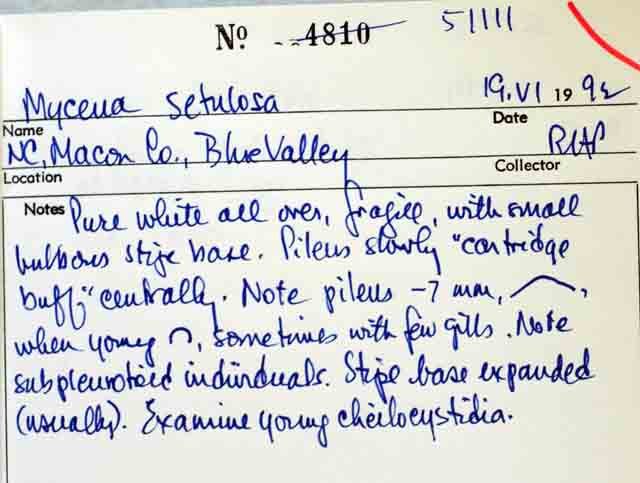 Nº 4810 51111
Mycena setulosa 19.VI 1992
Name Date
NC, Macon Co., Blue Valley RHP
Location Collector
Notes Pure white all over, fragile, with small
bulbous stipe base. Pileus slowly "cartridge
buff" centrally. Note pileus -7 mm, ⌒,
when young ∩, sometimes with few gills. Note
subpleurotoid individuals. Stipe base expanded
(usually). Examine young cheilocystidia.